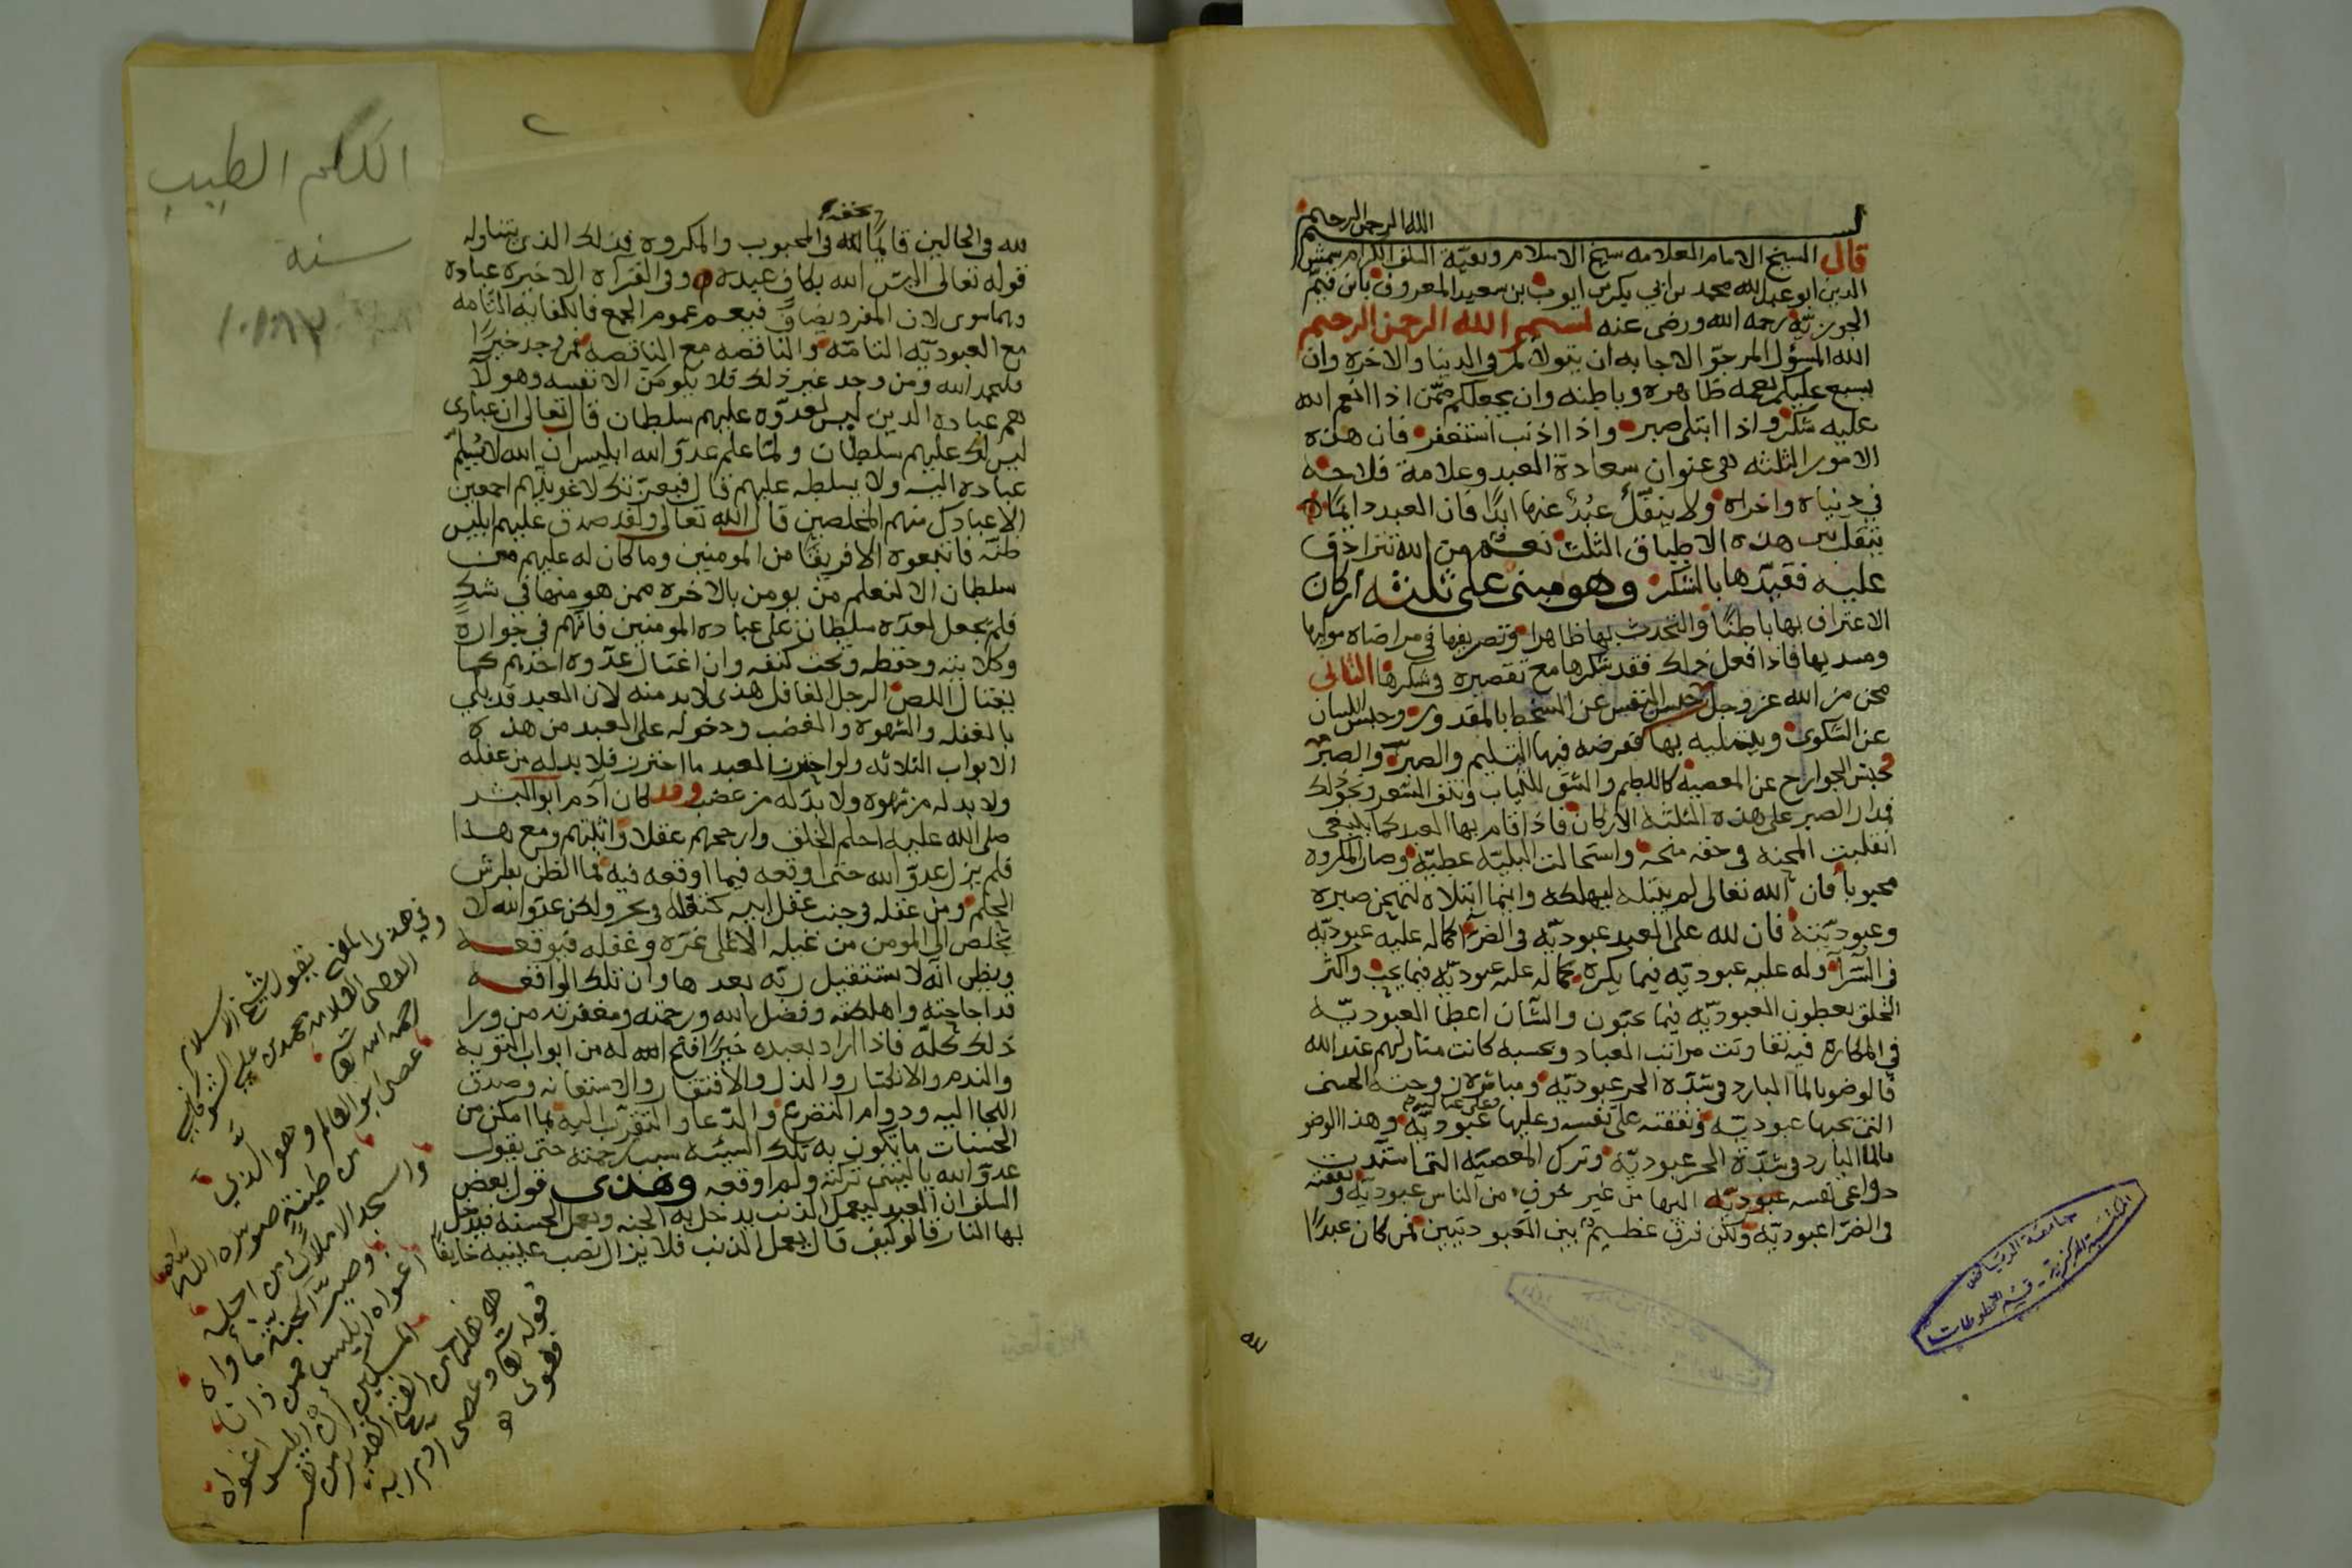 بسم الله الرحمن الرحيم
قال الشيخ الامام العلامه شيخ الاسلام وبقيّة السلف الكرام شمس
الدين ابو عبد الله محمد بن ابي بكر بن ايوب بن سعيد المعروف بابن قيّم
الجوزيّه رحمه الله ورضى عنه بسم الله الرحمن الرحيم
الله المسؤل المرجوّ الاجابه ان يتولاكم في الدنيا والاخره وان
يسبغ عليكم نعمه ظاهره وباطنه وان يجعلكم ممّن اذا انعم الله
عليه شكر واذا ابتلى صبر واذا اذنب استغفر فان هذه
الامور الثلثه هي عنوان سعادة العبد وعلامة فلاحه
في دنياه واخراه ولا ينفكّ عبدٌ عنها ابدًا فان العبد دايمًا
يتقلب بين هذه الاطباق الثلث نعم من الله تترادف
عليه فقيّدها بالشكر وهو مبنى على ثلثه اركان
الاعتراف بها باطنًا والتحدث بها ظاهرا وتصريفها في مرضاه موليها
ومسديها فاذا فعل ذلك فقد شكرها مع تقصيره في شكرها الثانى
محن من الله عز وجل حبس النفس عن السخط بالمقدور وحبس اللسان
عن الشكوى يبتليه بها ففرضه فيها التسليم والصبر والصبر
وحبس الجوارح عن المعصيه كاللطم والشق للثياب ونتف الشعر ونحو ذلك
فمدار الصبر على هذه الثلثه الاركان فاذا قام بها العبد كما ينبغى
انقلبت المحنه في حقه منحه واستحالت البليّه عطيّه وصار المكروه
محبوبا فان الله تعالى لم يبتله ليهلكه وانما ابتلاه ليمتحن صبره
وعبوديّته فان لله على العبد عبوديّه في الضرّآ كما له عليه عبوديّه
في السّرّآ وله عليه عبوديّه فيما يكره كما له عليه عبوديّه فيما يحب واكثر
الخلق يعطون العبوديّه فيما يحبّون والشّان اعطا العبوديّه
في المكاره فيه تفاوتت مراتب العباد وبحسبه كانت منازلهم عند الله
فالوضو بالما البارد في شدّه الحر عبوديّه ومباشره زوجته الحسنى
التي يحبها عبوديّه ونفقته على نفسه وعليها عبوديّه وهذا الوضو
بالما البارد في شدّة الحر عبوديّه وترك المعصيّه التى اشتدّت
دواعى نفسه اليها من غير خوفٍ من الناس عبوديّه ونفقته
في الضرّا عبوديّه ولكن فرق عظيم بين العبوديتيين فمن كان عبدًا
لله
جامعة الرياض
المكتبة المركزية - قسم المخطوطات
٢
الكلم الطيب
لله في الحالين قائمًا بحقه لله في المحبوب والمكروه فذلك الذى يتناوله
قوله تعالى اليس الله بكافٍ عبده وفي القرآه الاخيره عباده
وهما سوى لان المفرد يضاف فيعم عموم الجمع فالكفايه التّامه
مع العبوديّه التامّه والناقصه مع الناقصه فمن وجد خيرًا
فليحمد الله ومن وجد غير ذلك فلا يلومن الا نفسه وهولآ
هم عباده الذين ليس لعدوّه عليهم سلطان قال تعالى ان عبادى
ليس لك عليهم سلطان ولمّا علم عدوّ الله ابليس ان الله لا يُسلم
عباده اليه ولا يسلطه عليهم قال فبعزّتك لاغوينّهم اجمعين
الا عبادك منهم المخلصين قال الله تعالى ولقد صدق عليهم ابليس
ظنّه فاتبعوه الا فريقًا من المومنين وما كان له عليهم من
سلطان الا لنعلم من يومن بالاخره ممن هو منها في شكٍ
فلم يجعل لعدوّه سلطان على عباده المومنين فانّهم في جواره
وكلايته وحفظه وتحت كنفه وان اغتال عدّوه احدهم كما
يغتال اللص الرجل الغافل هذى لا بد منه لان العبد قد بلي
بالغفله والشهوه والغضب ودخوله على العبد من هذه
الابواب الثلاثه ولو احترز العبد ما احترز فلا بد له من غفله
ولا بد له من شهوه ولا بدّ له من غضب وقد كان آدم ابو البشر
صلى الله عليه احلم الخلق وارجحهم عقلا واثبتهم ومع هذا
فلم يزل عدوّ الله حتى اوقعه فيما اوقعه فيه فما الظن بفراش
الحلم ومن عقله في جنب عقل ابيه كتفله في بحر ولكن عدوّ الله لا
يخلص الى المومن من غيله الا على غرّه وغفله فيوقعه
ويظن انّه لا يستقيل ربّه بعدها وان تلك الواقعه
قد اجاحته واهلكته وفضل الله ورحمته ومغفرته من ورا
ذلك كلّه فاذا اراد بعبده خيرًا فتح الله له من ابواب التوبه
والندم والانكسار والذل والافتقار والاستعانه وصدق
اللجا اليه ودوام التضرع والدّعا والتقرّب اليه بما امكن من
الحسنات ما تكون به تلك السيّئه سبب رحمته حتى يقول
عدوّ الله ياليتنى تركته ولم اوقعه وهذى قول بعض
السلف ان العبد ليعمل الذنب يدخل به الجنه ويعمل الحسنه فيدخل
بها النار قالو كيف قال يعمل الذنب فلا يزال نصب عينيه خايفًا
وفي هذى المعنى يقول شيخ الاسلام
القاضى العلامه محمد بن علي الشوكاني
رحمه الله تعالى
عصى ابو العالم وهو الذي
من طينةٍ صوره الله
واسجد الاملاك من اجله
وصيّر الجنة ماواه
اغواه ابليس فمن ذا انا
المسكين ان ابليس اغواه
قوله تعالى وعصى ادم ربه
فغوى